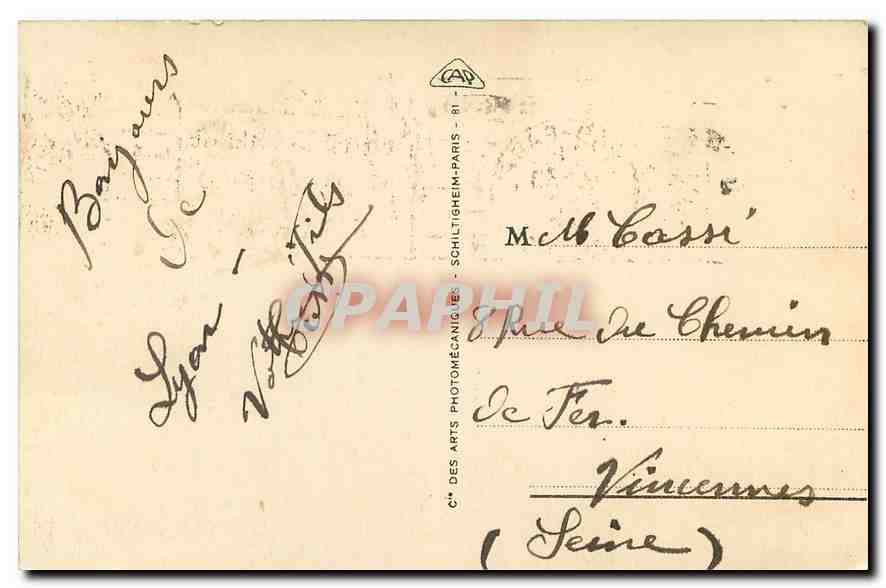 Bonjours
de
Lyon
Votre Fils
CAP
Cie DES ARTS PHOTOMÉCANIQUES - SCHILTIGHEIM-PARIS - 81 -
CPAPHIL
M M Cassé
8 Rue du Chemin
de Fer.
Vincennes
(Seine)